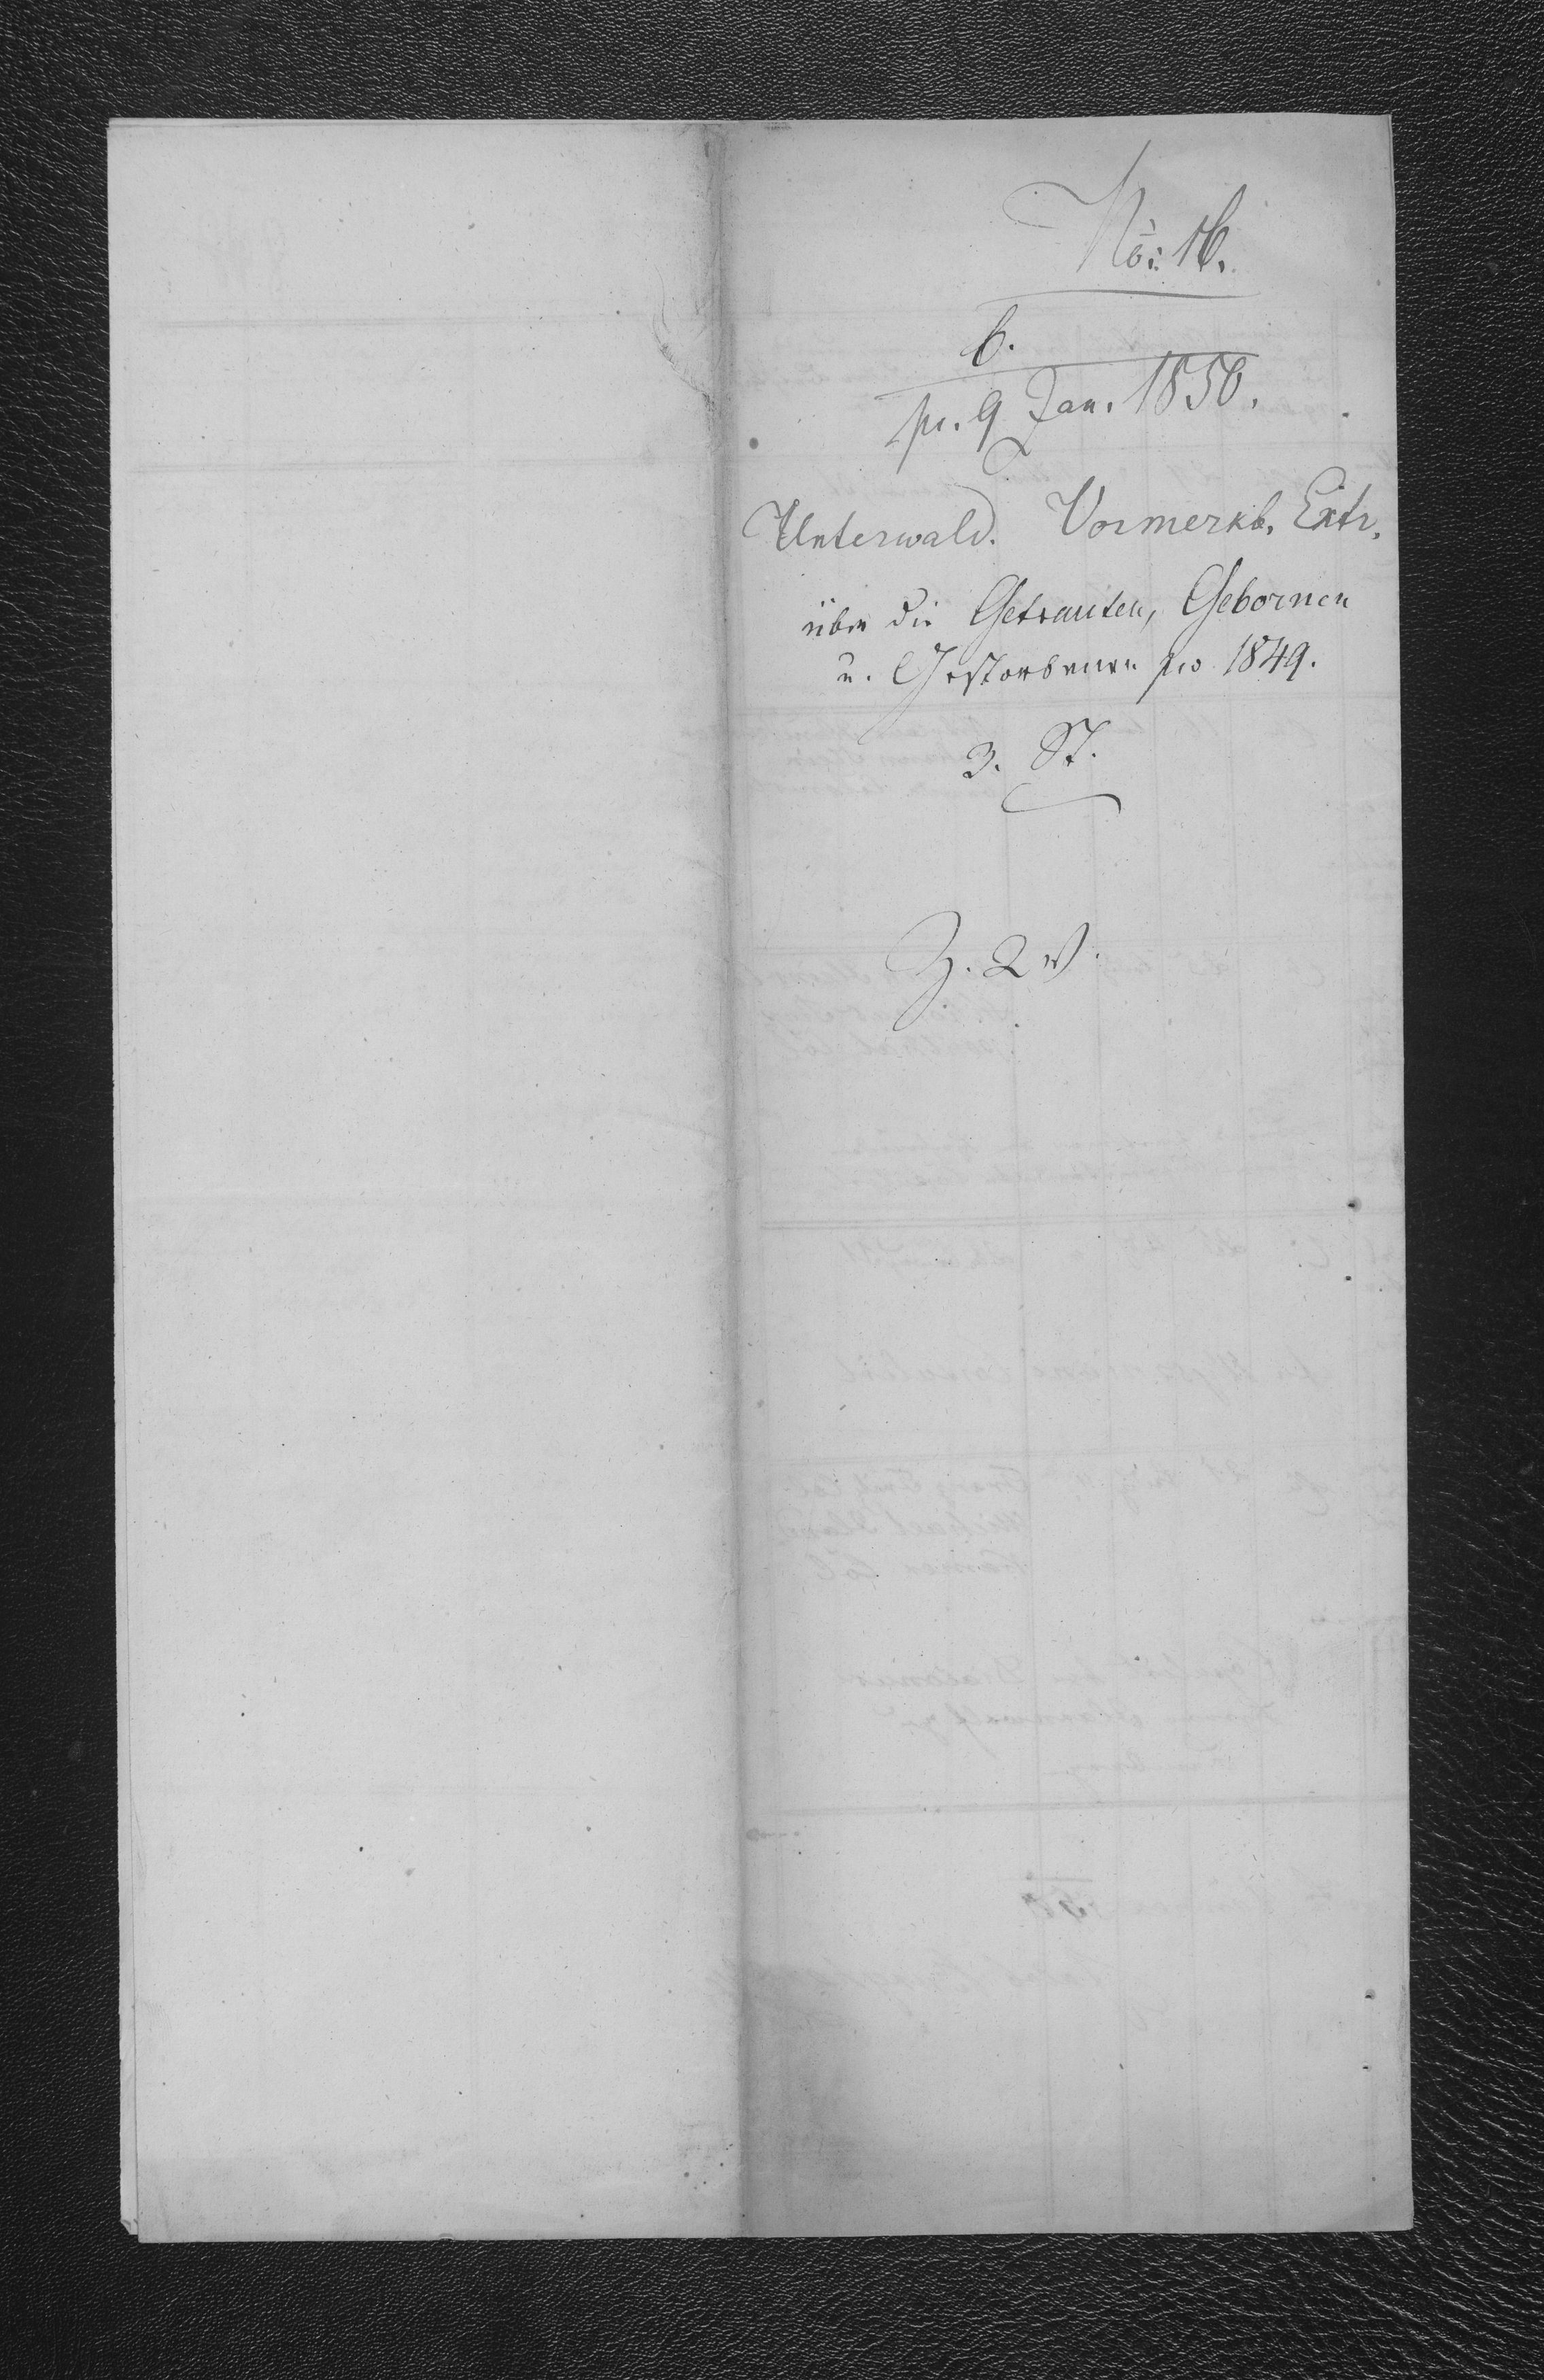 No: 16.
6.
pr. 9 Jan. 1850.
Unterwald. Vormerkb. Extr.
über die Getrauten, Gebornen
u. Gestorbenen pro 1849.
3. St.